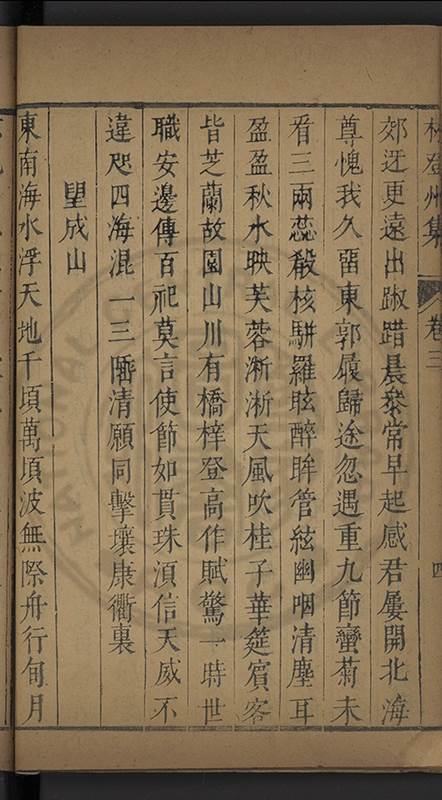 林登州集 卷三 四
郊迓更遠出踧踖晨參常早起感君屢開北海
尊愧我久留東郭履歸途忽遇重九節蠻菊未
看三兩蕊殽核駢羅眩醉眸管絃幽咽清塵耳
盈盈秋水映芙蓉淅淅天風吹桂子華筵賓客
皆芝蘭故園山川有橋梓登高作賦驚一時世
職安邊傳百祀莫言使節如貫珠須信天威不
違咫四海混一三階清願同擊壤康衢裏
望成山
東南海水浮天地千頃萬頃波無際舟行旬月